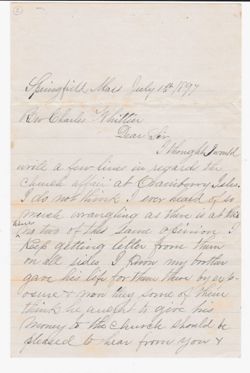 Springfield Mass July 1st 1897
Rev Charles Whittier
Dear Sir
I thought I would
write a few lines in regards the
church affair at Cranberry Isles.
I do not think I ever heard of so
much wrangling as there is at this
no two of the same opinion I
Keep getting letter from them
on all sides. I know my brother
gave his life for them there by exp-
osure & now they some of them
think he aught to give his
money to the church should be
pleased to hear from you &